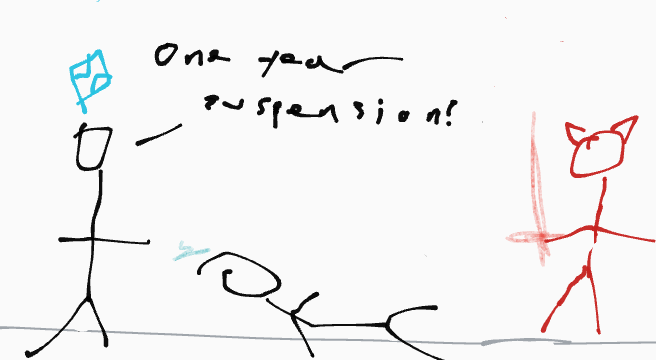 One year
suspension!